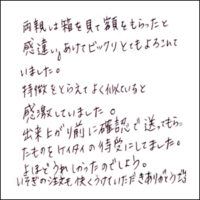 両親は箱を見て額をもらったと
感違い。あけてビックリとてもよろこんで
いました。
特徴をとらえてよく似ていると
感激していました。
出来上がり前に確認で送ってもらっ
たものをケイタイの待受にしてました。
よほどうれしかったのでしょう。
いそぎの注文も快くうけていただきありがとうござ